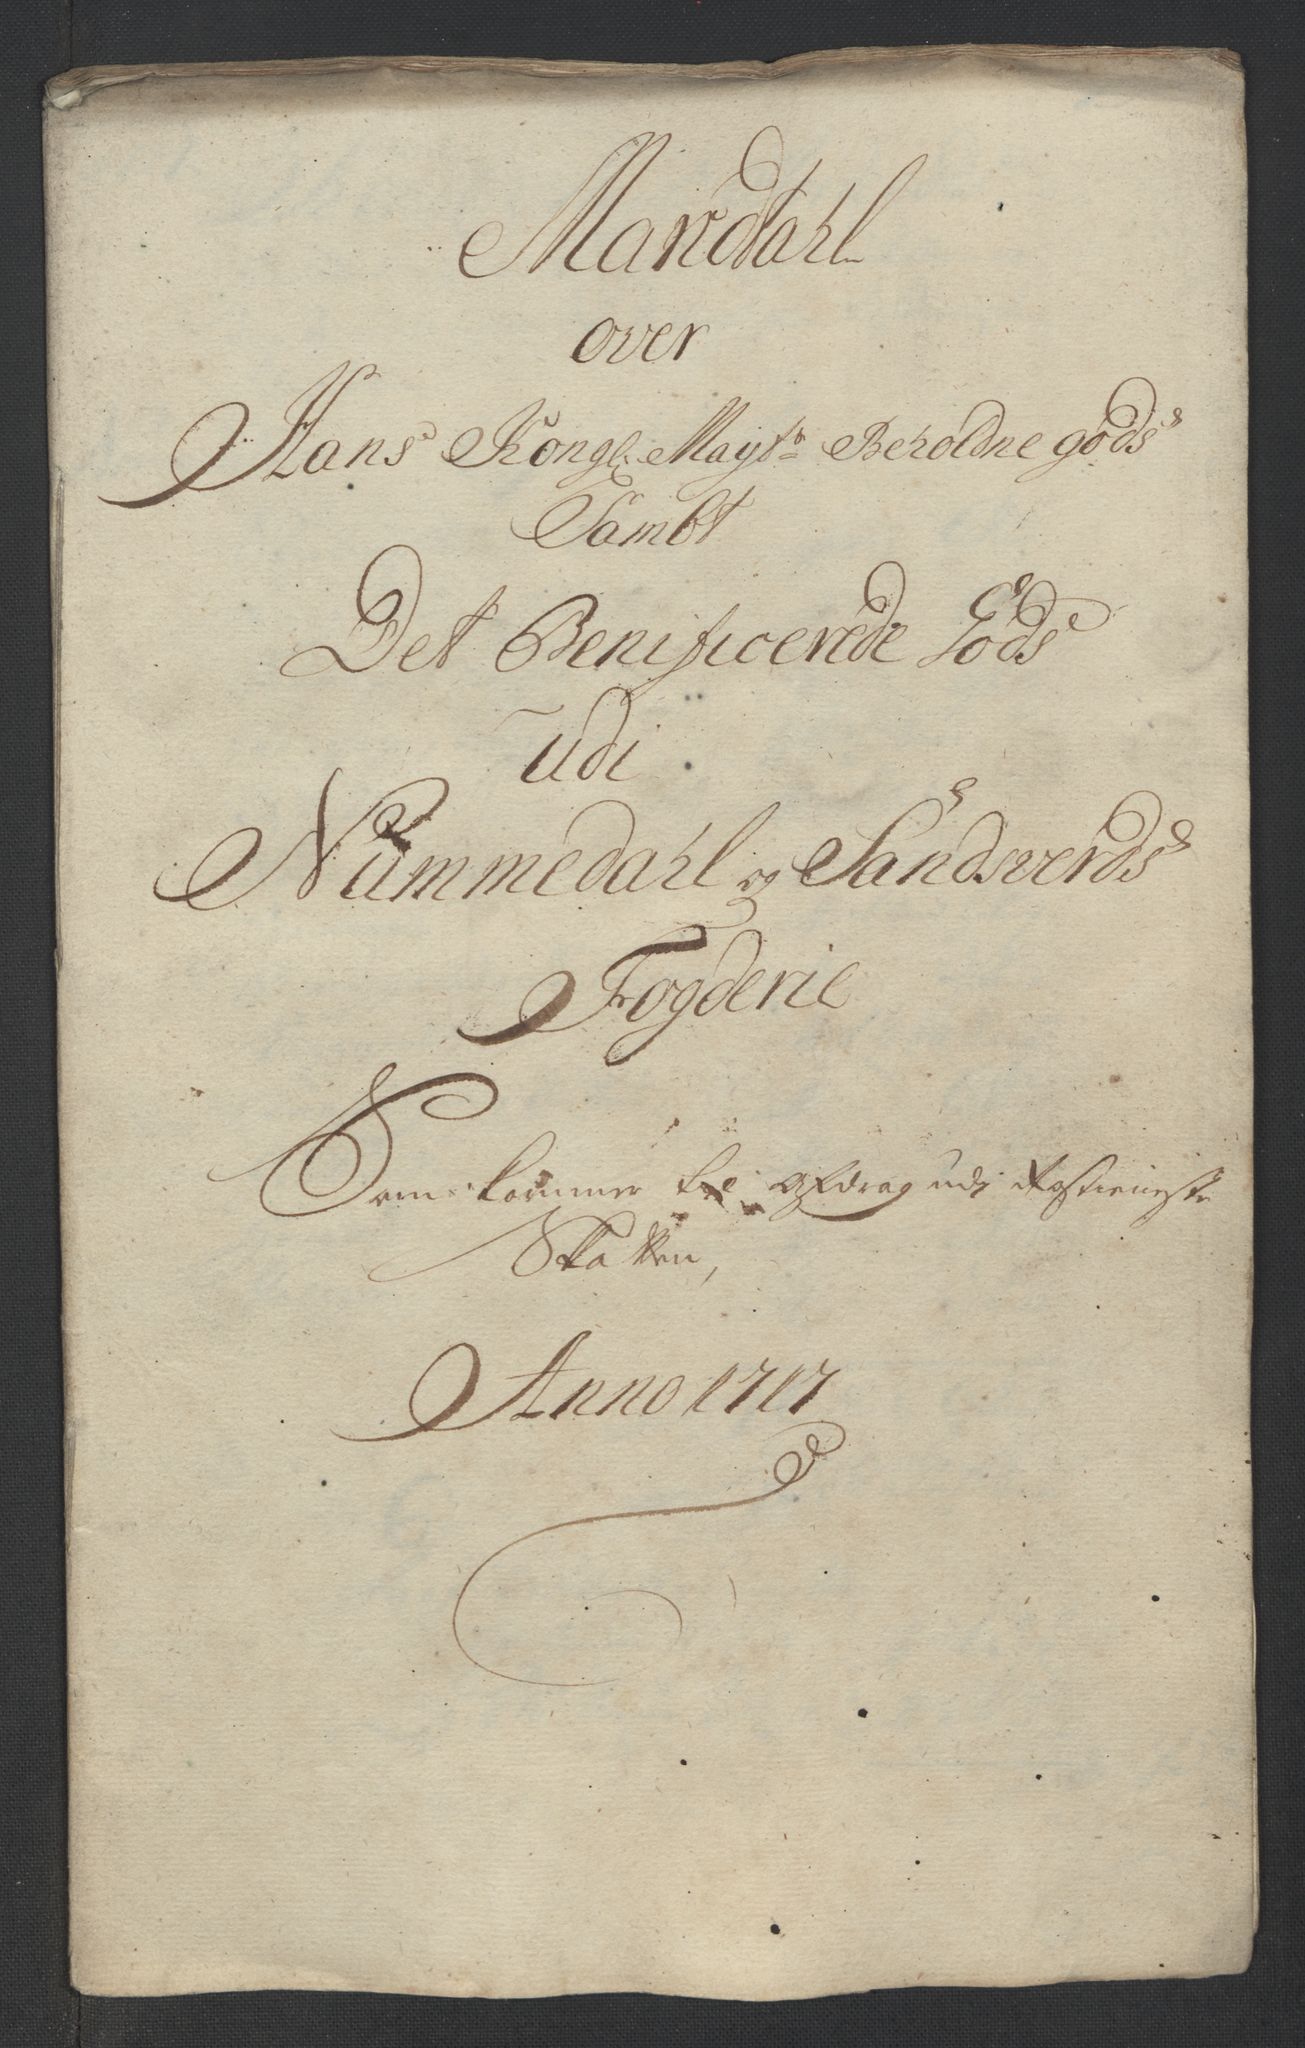 Mandtahl
over
Hans Kongl: Mayts Beholdne gods
Sambt
Det Benificerede Gods
udi
Nummedahl og Sandsverds
Fogderie
Som kommer til afdrag udi Rostieniste
Skatten,
Anno 1717